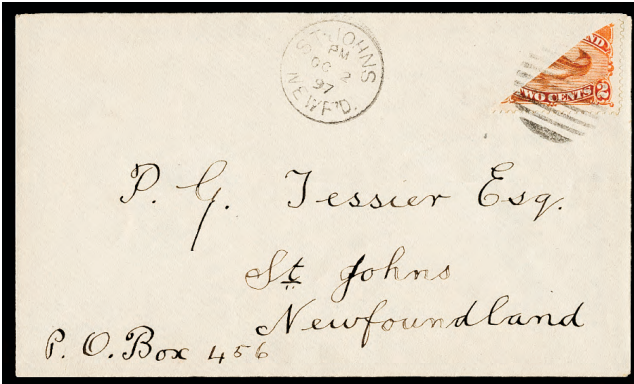 ST. JOHNS
PM
OC 2
97
NEWF'D.
ND
WO CENTS 2
P. G. Tessier Esq.
St Johns
Newfoundland
P. O. Box 456